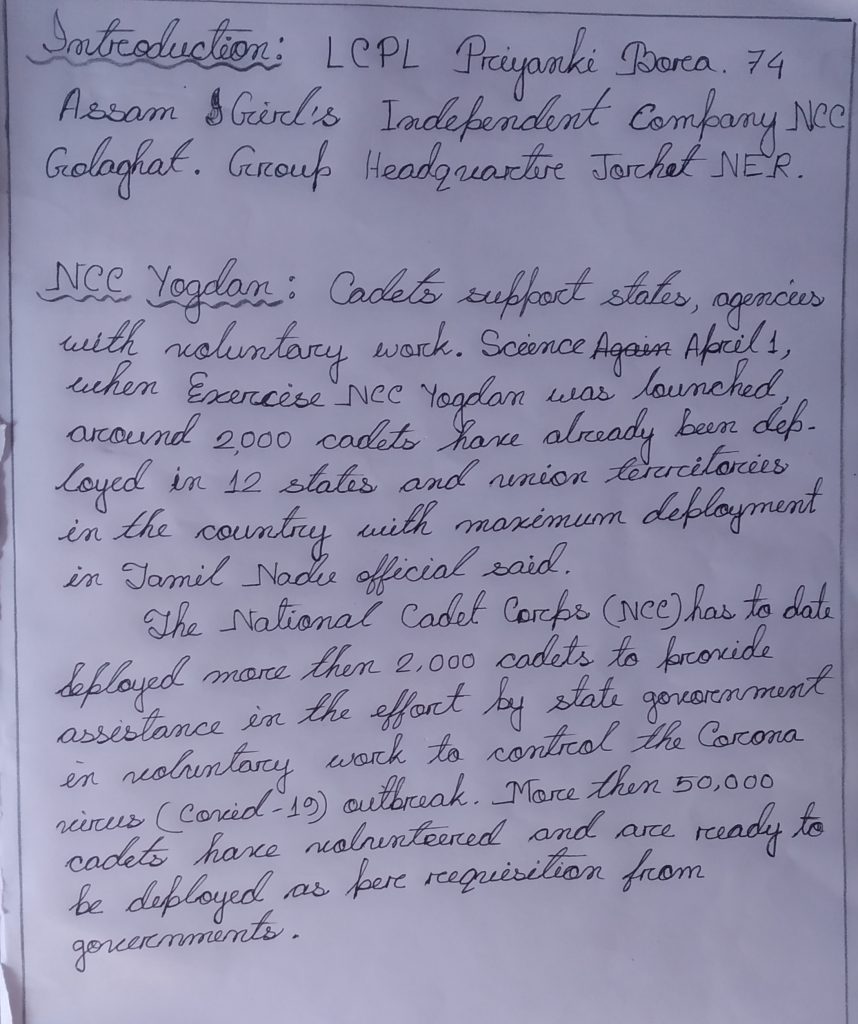 Introduction: LCPL Priyanki Borea. 74
Assam Girl's Independent Company NCC
Golaghat. Group Headquarter Jorhat NER.
NCC Yogdan: Cadets support states, agencies
with voluntary work. Science Again April 1,
when Exercise NCC Yogdan was lounched,
around 2,000 cadets have already been dep-
loyed in 12 states and union territories
in the country with maximum deployment
in Tamil Nadu official said.
The National Cadet Corps (NCC) has to date
deployed more then 2,000 cadets to provide
assistance in the effort by state government
in voluntary work to control the Corona
virus (Covid-19) outbreak. More then 50,000
cadets have volunteered and are ready to
be deployed as per requisition from
governments.